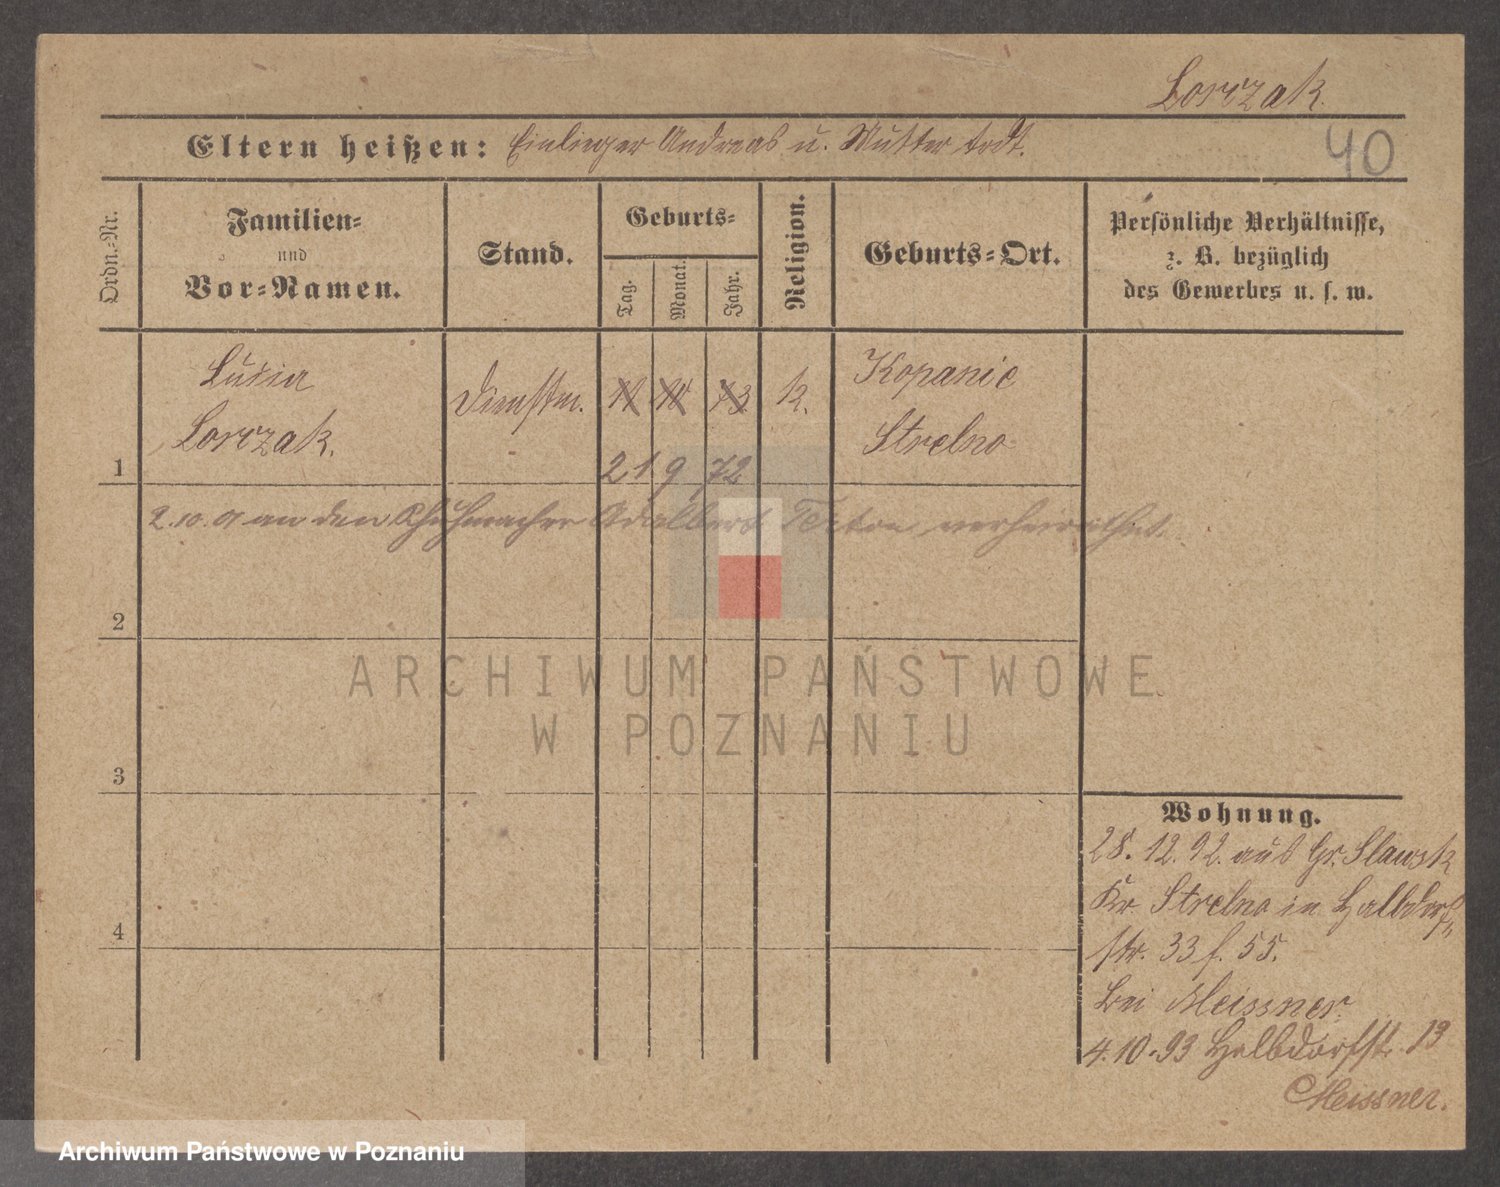 Lorczak.
40
Eltern heißen: Einlieger Andreas u. Mutter todt.
Ordn.-Nr.
Familien-
und
Vor-Namen.
Stand.
Geburts-
Tag.
Monat.
Jahr.
Religion.
Geburts-Ort.
Persönliche Verhältnisse,
z. B. bezüglich
des Gewerbes u. s. w.
Lucia
Lorczak.
Dienstm.
11 10 73
k.
Kopanie
Strelno
1
21 9 72
2.10.01 an den Schuhmacher Adalbert verheirathet.
2
3
4
Wohnung.
28.12.92. aus Gr. Slawsk
Kr Strelno in Halbdorf
str. 33 f. 55.
bei Meissner
4.10.93 Halbdorfstr. 13
Meissner.
ARCHIWUM PAŃSTWOWE
W POZNANIU
Archiwum Państwowe w Poznaniu